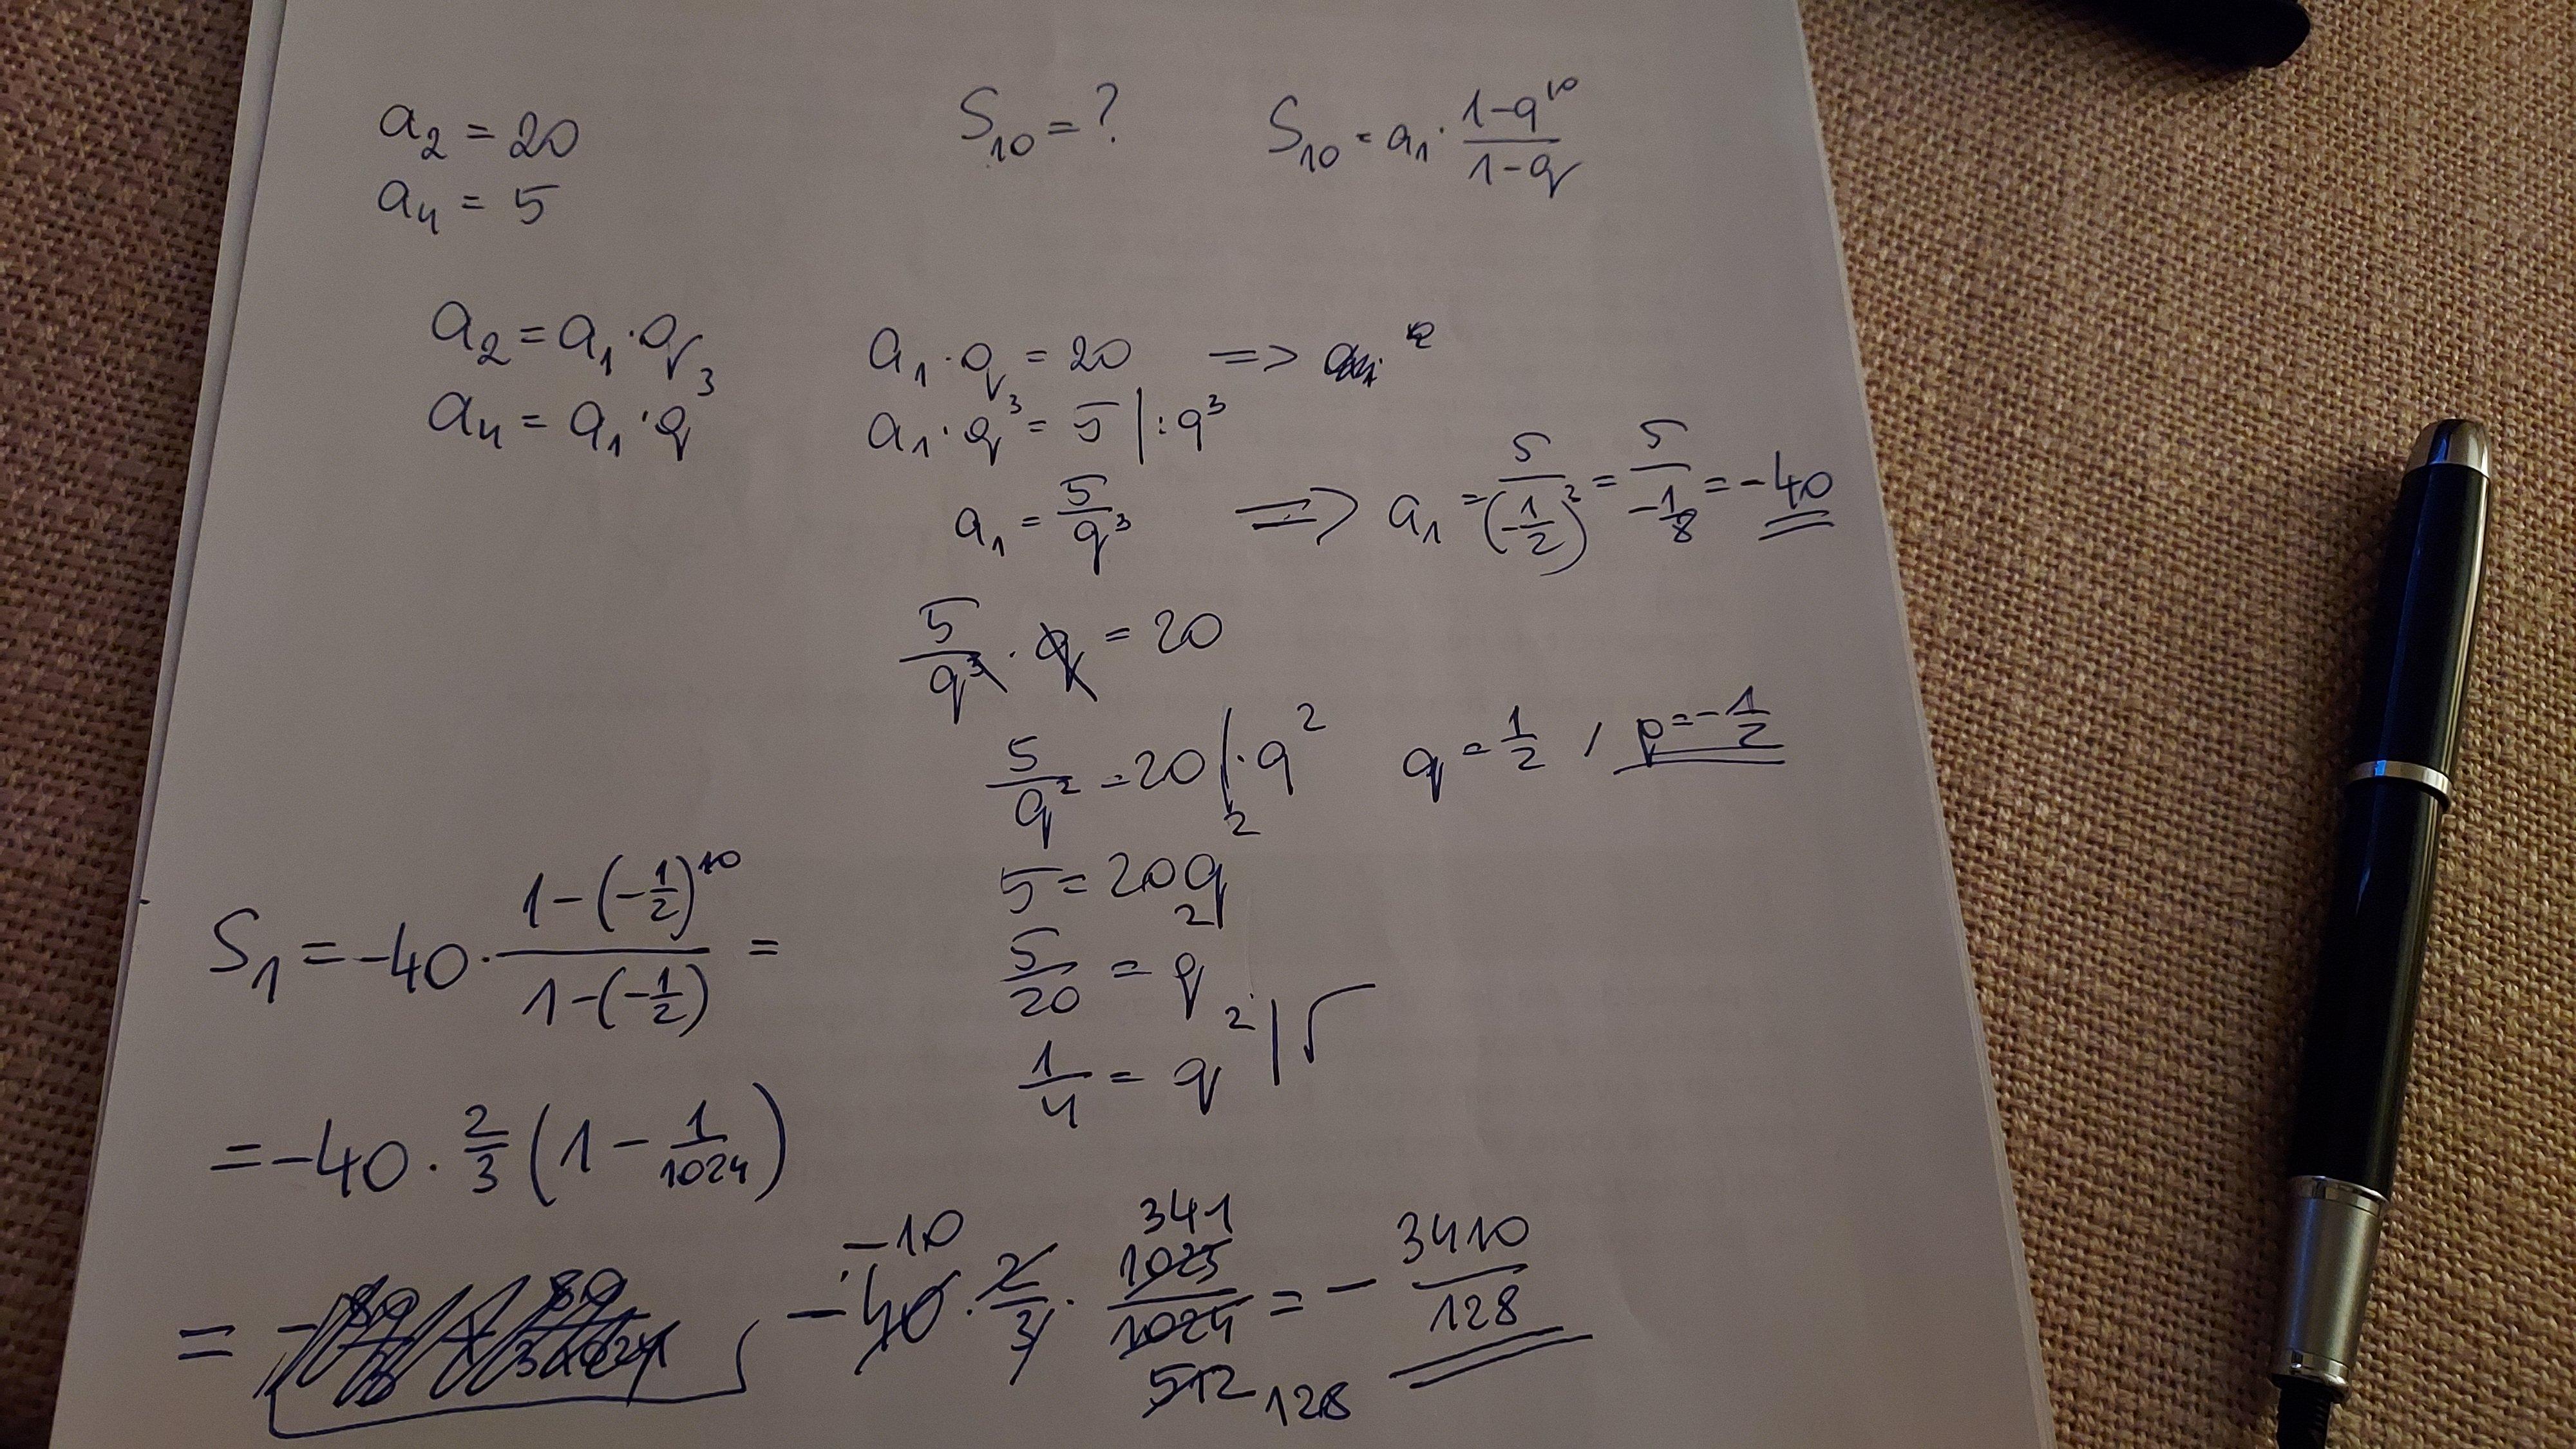 a₂ = 20
a₄ = 5
S₁₀ = ?
S₁₀ = a₁ · (1-q¹⁰)/(1-q)
a₂ = a₁ · q
a₄ = a₁ · q³
a₁ · q = 20 =>
a₁ · q³ = 5 | : q³
a₁ = 5/q³ => a₁ = 5/(-1/2)³ = 5/(-1/8) = -40
5/q³ · q = 20
5/q² = 20 | · q²
q = 1/2 , q = -1/2
5 = 20q²
5/20 = q²
1/4 = q² | √
S₁ = -40 · (1-(-1/2)¹⁰)/(1-(-1/2)) =
= -40 · 2/3 (1 - 1/1024)
-10 341
= -40 · 2/3 · 1023/1024 = - 3410/128
512 128